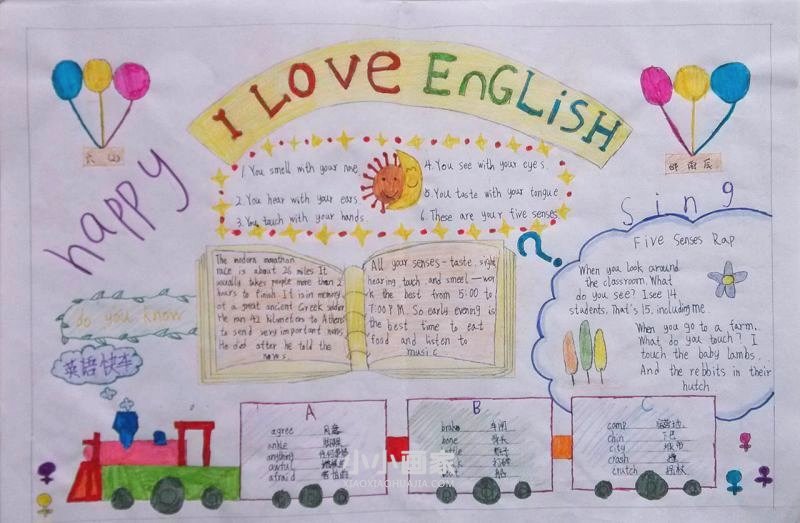 I LOVE EnGLiSH
六 (2)
happy
Sing
1. You smell with your nose
2. You hear with your ears.
3. You touch with your hands.
4. You see with your eyes.
5. You taste with your tongue
6. These are your five senses
?
The modern marathon
race is about 26 miles It
usually takes people more than 2
hours to finish. It is in memory
of a great ancient Greek soldier
He ran 42 kilometers to Athens
to send very important news.
He died after he told the
news.
All your senses - taste. sight
hearing touch. and smell — wor
k the best from 5:00 to
7:00 P.M. So early evening is
the best time to eat
food and listen to
music
Five Senses Rap
When you look around
the classroom. What
do you see? I see 14
students. That's 15, including me.
When you go to a farm.
What do you touch? I
touch the baby lambs.
And the rebbits in their
hutch
do you know
英语快车
A
agree 同意
ankle 脚踝
anything 任何事物
awful
afraid 害怕的
B
brake 车闸
bone 骨头
bottle 瓶子
打碎
boat 船
C
camp
chin 下巴
city 城市
crash 撞
crutch 拐杖
小小画家
XIAOXIAOHUAJIA.COM